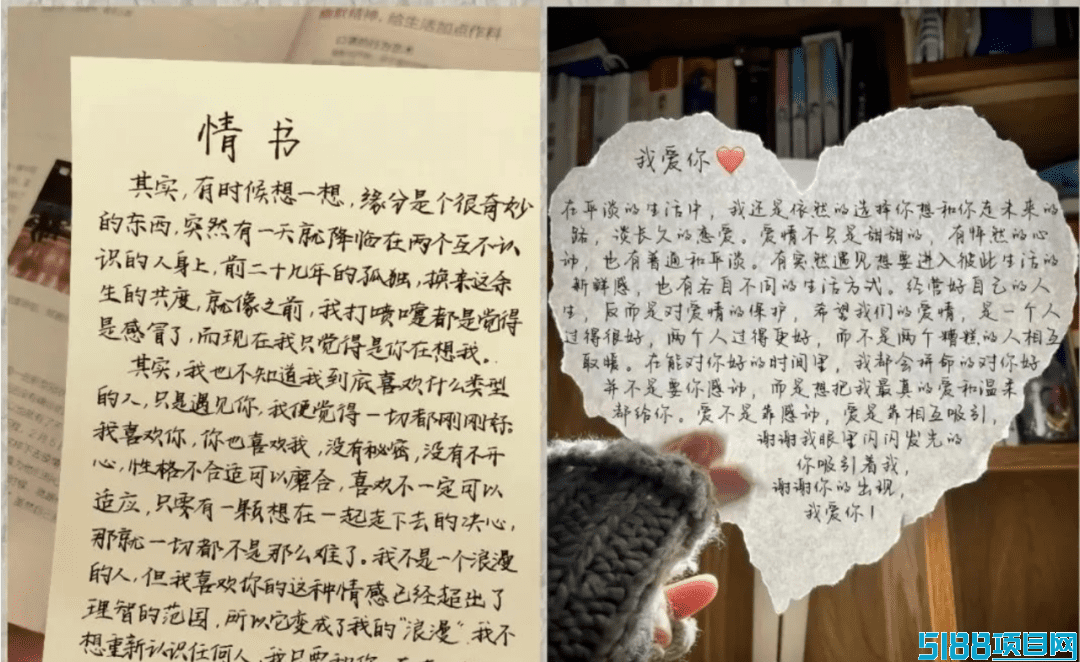 幽默精神，给生活加点作料
情书
其实，有时候想一想，缘分是个很奇妙
的东西，突然有一天就降临在两个互不认
识的人身上，前二十九年的孤独，换来这余
生的共度，就像之前，我打喷嚏都是觉得
是感冒了，而现在我只觉得是你在想我。
其实，我也不知道我到底喜欢什么类型
的人，只是遇见你，我便觉得一切都刚刚好
我喜欢你，你也喜欢我，没有秘密，没有不开
心，性格不合适可以磨合，喜欢不一定可以
适应，只要有一颗想在一起走下去的决心，
那就一切都不是那么难了。我不是一个浪漫
的人，但我喜欢你的这种情感已经超出了
理智的范围，所以它变成了我的“浪漫”。我不
想重新认识任何人，我只要和你
我爱你❤️
在平淡的生活中，我还是依然的选择你想和你走未来的
路，谈长久的恋爱。爱情不只是甜甜的，有怦然的心
动，也有普通和平淡。有突然遇见想要进入彼此生活的
新鲜感，也有各自不同的生活方式。经营好自己的人
生，反而是对爱情的保护，希望我们的爱情，是一个人
过得很好，两个人过得更好，而不是两个糟糕的人相互
取暖。在能对你好的时间里，我都会拼命的对你好
并不是要你感动，而是想把我最真的爱和温柔
都给你。爱不是靠感动，爱是靠相互吸引，
谢谢我眼里闪闪发光的
你吸引着我，
谢谢你的出现，
我爱你！
5188项目网